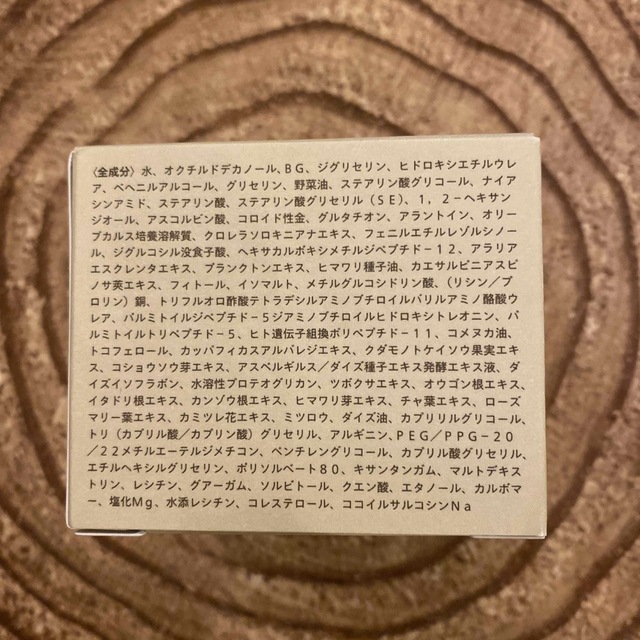 〈全成分〉水、オクチルドデカノール、BG、ジグリセリン、ヒドロキシエチルウレ
ア、ベヘニルアルコール、グリセリン、野菜油、ステアリン酸グリコール、ナイア
シンアミド、ステアリン酸、ステアリン酸グリセリル（SE）、1，2－ヘキサン
ジオール、アスコルビン酸、コロイド性金、グルタチオン、アラントイン、オリー
ブカルス培養溶解質、クロレラソロキニアナエキス、フェニルエチルレゾルシノー
ル、ジグルコシル没食子酸、ヘキサカルボキシメチルジペプチド－12、アラリア
エスクレンタエキス、プランクトンエキス、ヒマワリ種子油、カエサルピニアスピ
ノサ莢エキス、フィトール、イソマルト、メチルグルコシドリン酸、（リシン／プ
ロリン）銅、トリフルオロ酢酸テトラデシルアミノブチロイルバリルアミノ酪酸ウ
レア、パルミトイルジペプチド－5ジアミノブチロイルヒドロキシトレオニン、パ
ルミトイルトリペプチド－5、ヒト遺伝子組換ポリペプチド－11、コメヌカ油、
トコフェロール、カッパフィカスアルバレジエキス、クダモノトケイソウ果実エキ
ス、コショウソウ芽エキス、アスペルギルス／ダイズ種子エキス発酵エキス液、ダ
イズイソフラボン、水溶性プロテオグリカン、ツボクサエキス、オウゴン根エキス、
イタドリ根エキス、カンゾウ根エキス、ヒマワリ芽エキス、チャ葉エキス、ローズ
マリー葉エキス、カミツレ花エキス、ミツロウ、ダイズ油、カプリリルグリコール、
トリ（カプリル酸／カプリン酸）グリセリル、アルギニン、PEG／PPG－20
／22メチルエーテルジメチコン、ペンチレングリコール、カプリル酸グリセリル、
エチルヘキシルグリセリン、ポリソルベート80、キサンタンガム、マルトデキス
トリン、レシチン、グアーガム、ソルビトール、クエン酸、エタノール、カルボマ
ー、塩化Mg、水添レシチン、コレステロール、ココイルサルコシンNa